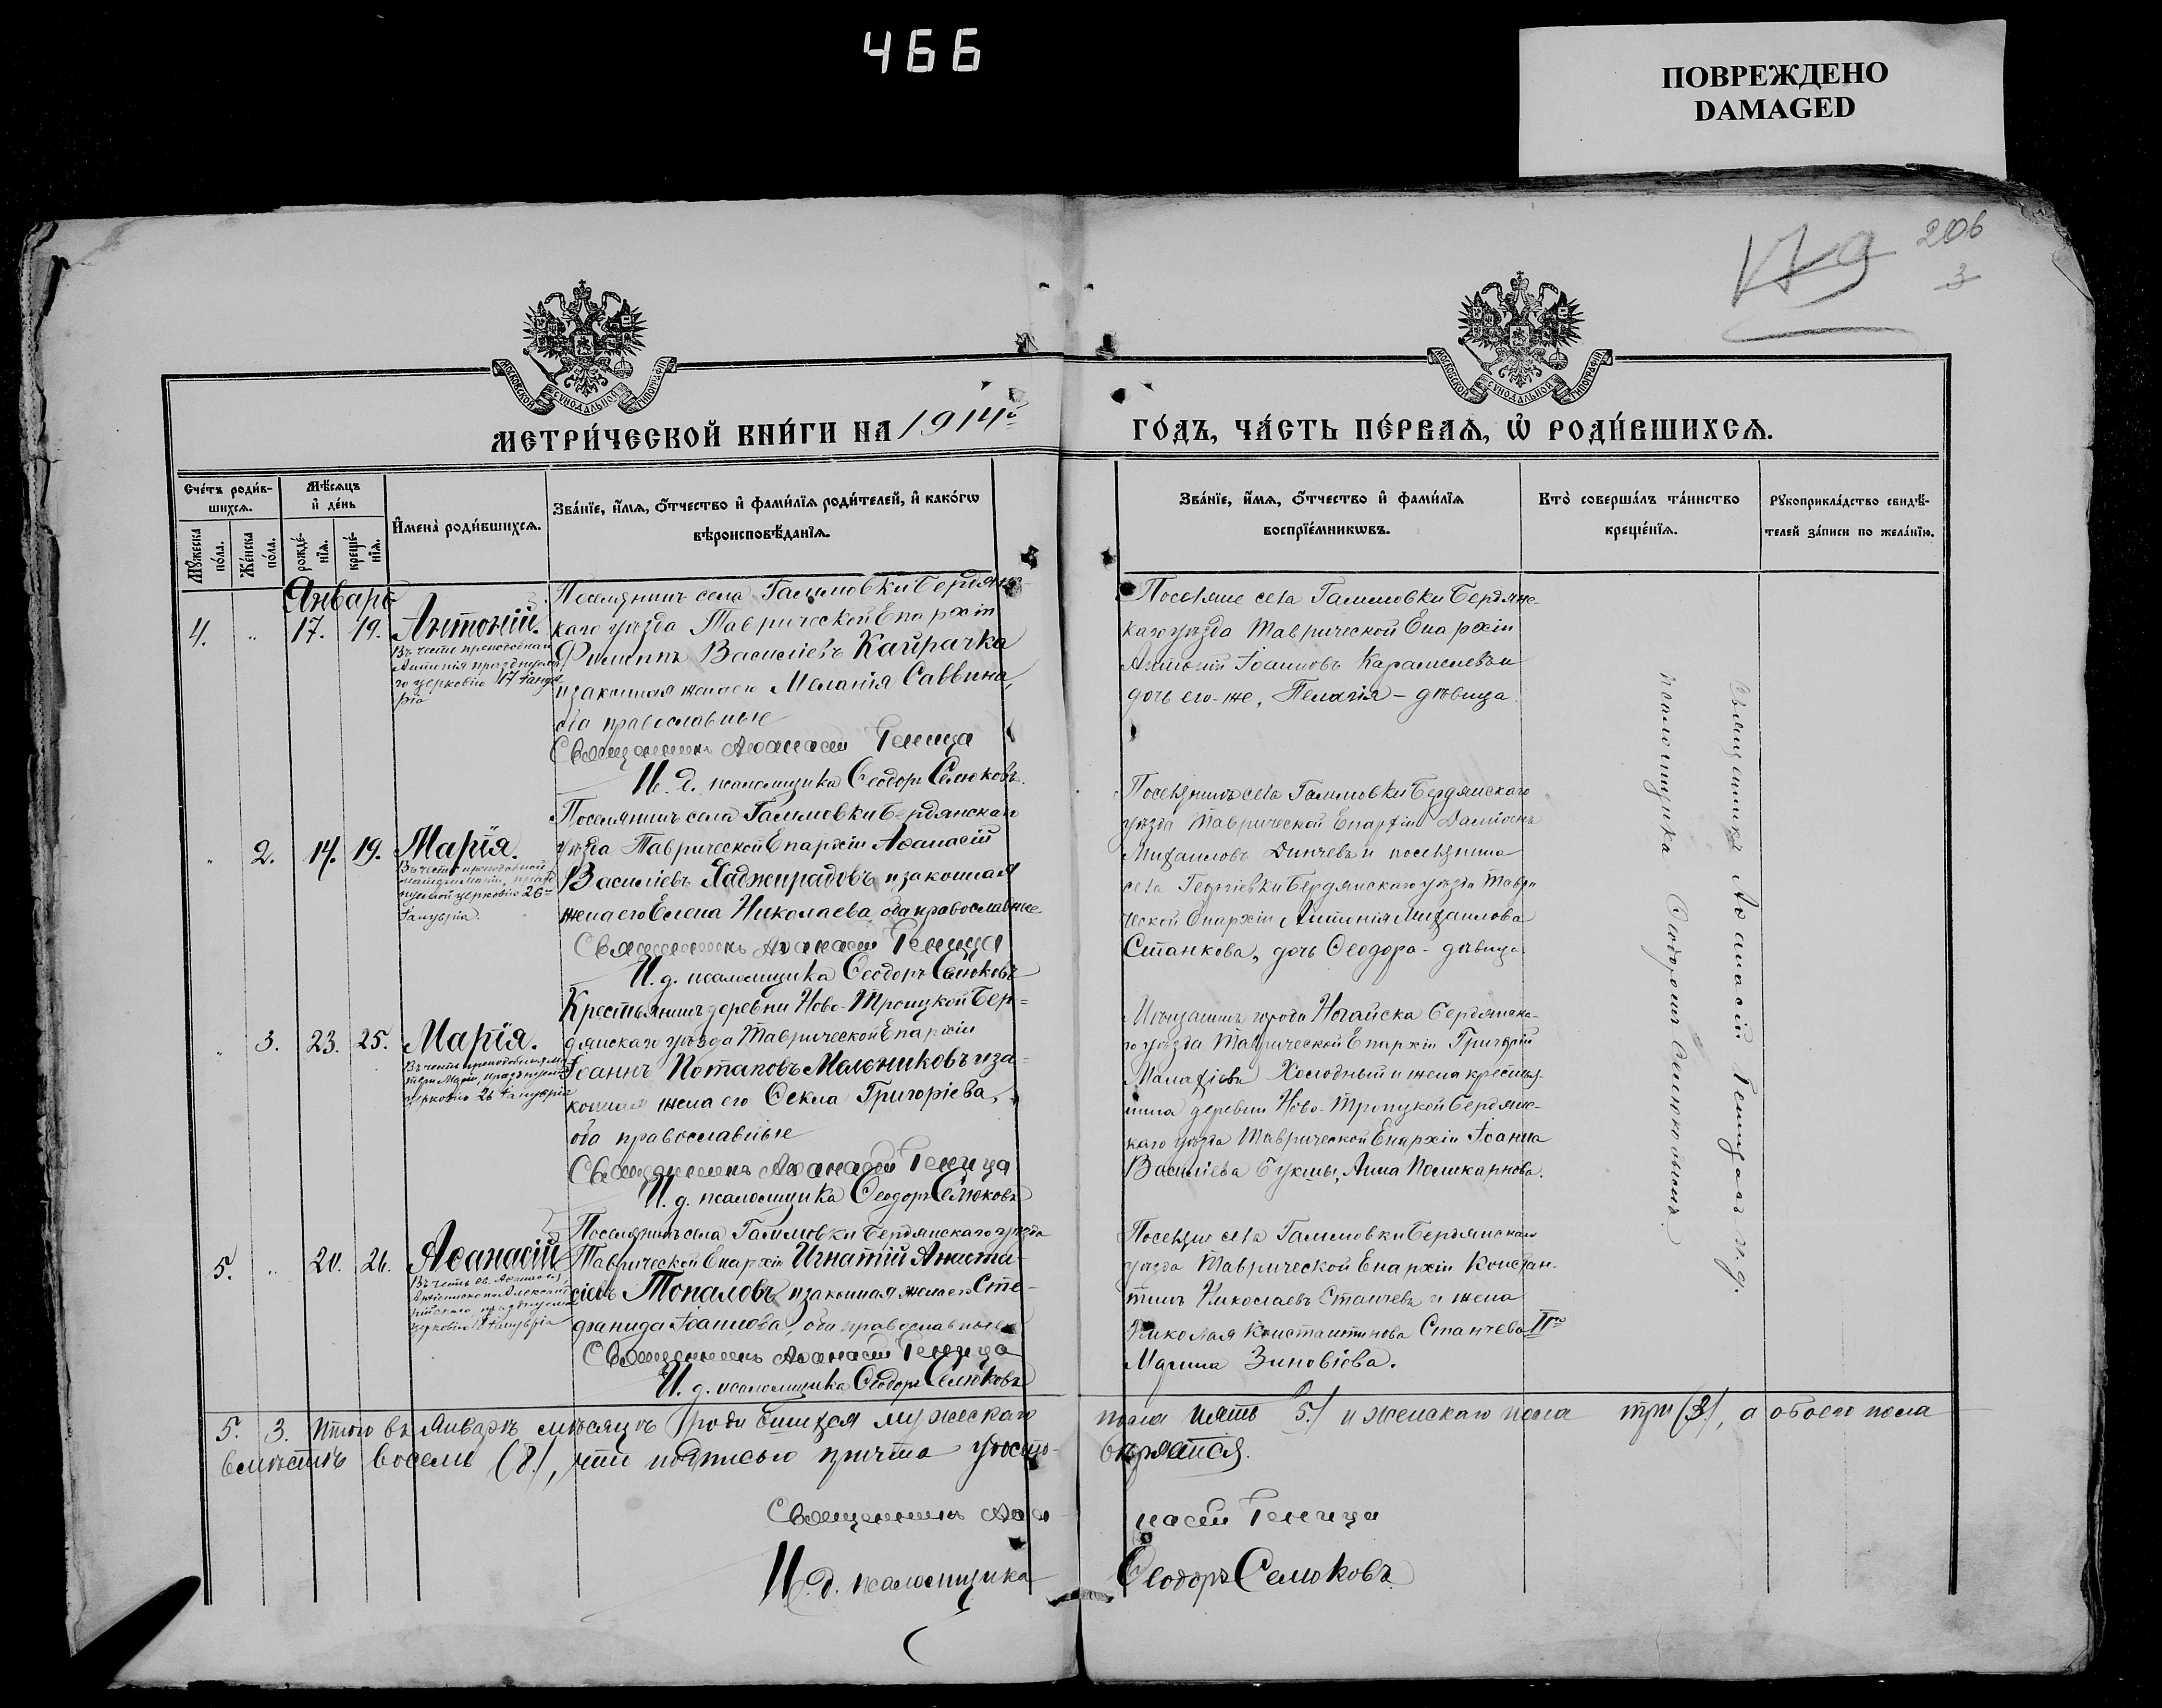 466
ПОВРЕЖДЕНО
DAMAGED
206
3
МОСКОВСКОЙ СѴНОДАЛЬНОЙ ТИПОГРАФІИ
МОСКОВСКОЙ СѴНОДАЛЬНОЙ ТИПОГРАФІИ
МЕТРИ́ЧЕСКОЙ КНИ́ГИ НА 1914й
ГО́ДЪ, ЧА́СТЬ ПЕ́РВАѦ, Ѡ҆ РОДИ́ВШИХСѦ.
Сче́тъ роди́в-
шихсѧ.
Мꙋ́жеска по́ла.
Же́нска по́ла.
Мѣ́сѧцъ
и҆ де́нь
рожде́-
нїѧ.
креще́-
нїѧ.
И҆мена̀ роди́вшихсѧ.
Зва́нїе, и҆́мѧ, ѻ҆́тчество и҆ фами́лїѧ роди́телей, и҆ како́гѡ
вѣроисповѣ́данїѧ.
Зва́нїе, и҆́мѧ, ѻ҆́тчество и҆ фами́лїѧ
воспрїе́мникѡвъ.
Кто̀ соверша́лъ та́инство
креще́нїѧ.
Рꙋкоприкла́дство свидѣ́-
телей за́писи по жела́нїю.
Январь
4. " 17. 19. Антоній.
Въ честь преподобнаго
Антонія празднуема-
го церковію 17 Янва-
рія
Поселянинъ села Галимовки Бердянс-
каго уѣзда Таврической Епархіи
Филиппъ Василіевъ Кайрачка
и законная жена его Меланія Саввина,
оба православные
Священникъ Аѳанасій Геница
И. д. псаломщика Ѳеодоръ Селюковъ.
Поселяне села Галимовки Бердянс-
каго уѣзда Таврической Епархіи
Антоній Іоанновъ Карамелевъ и
дочь его-же, Пелагія - дѣвица.
" 2. 14. 19. Марія.
Въ честь преподобной
матери Маріи, празд-
нуемой церковію 26го
Януарія.
Поселянинъ села Галимовки Бердянскаго
уѣзда Таврической Епархіи Аѳанасій
Василіевъ Хаджирадовъ и законная
жена его Елена Николаева, оба православные
Священникъ Аѳанасій Геница
И. д. псаломщика Ѳеодоръ Селюковъ
Поселянинъ села Галимовки Бердянскаго
уѣзда Таврической Епархіи Даміанъ
Михаиловъ Динчевъ и поселянина
села Георгіевки Бердянскаго уѣзда Таври-
ческой Епархіи Антонія Михаилова
Станкова, дочь Ѳеодора - дѣвица
" 3. 23. 25. Марія.
Въ честь преподобныя ма-
тери Маріи, празднуемой
церковію 26 Януарія
Крестьянинъ деревни Ново-Троицкой Бер-
дянскаго уѣзда Таврической Епархіи
Іоаннъ Потаповъ Мальниковъ и за-
конная жена его Ѳекла Григоріева,
оба православные
Священникъ Аѳанасій Геница
И. д. псаломщика Ѳеодоръ Селюковъ
Мѣщанинъ города Ногайска Бердянска-
го уѣзда Таврической Епархіи Григорій
Малахіевъ Холодный и жена крестья-
нина деревни Ново-Троицкой Бердянс-
каго уѣзда Таврической Епархіи Іоанна
Василіева Букши, Анна Поликарпова.
5. " 20. 26. Аѳанасій
Въ честь св. Аѳанасія,
Архіепископа Алексан-
дрійскаго, празднуемаго
церковію 18 Януарія
Поселянинъ села Галимовки Бердянскаго уѣзда
Таврической Епархіи Игнатій Анаста-
сіевъ Топаловъ и законная жена его Сте-
фанида Іоаннова, оба православные
Священникъ Аѳанасій Геница
И. д. псаломщика Ѳеодоръ Селюковъ
Поселяне села Галимовки Бердянскаго
уѣзда Таврической Епархіи Констан-
тинъ Николаевъ Станчевъ и жена
Николая Константинова Станчева IIго
Марина Зиновіева.
Священникъ Аѳанасій Геница и. д.
псаломщика Ѳеодоромъ Селюковымъ
5. 3. Итого въ Январѣ мѣсяцѣ родившихся мужескаго пола пять (5) и женскаго пола три (3), а обоего пола
вмѣстѣ восемь (8), что подписью причта удосто- вѣряется.
Священникъ Аѳа- насій Геница
И. д. псаломщика Ѳеодоръ Селюковъ